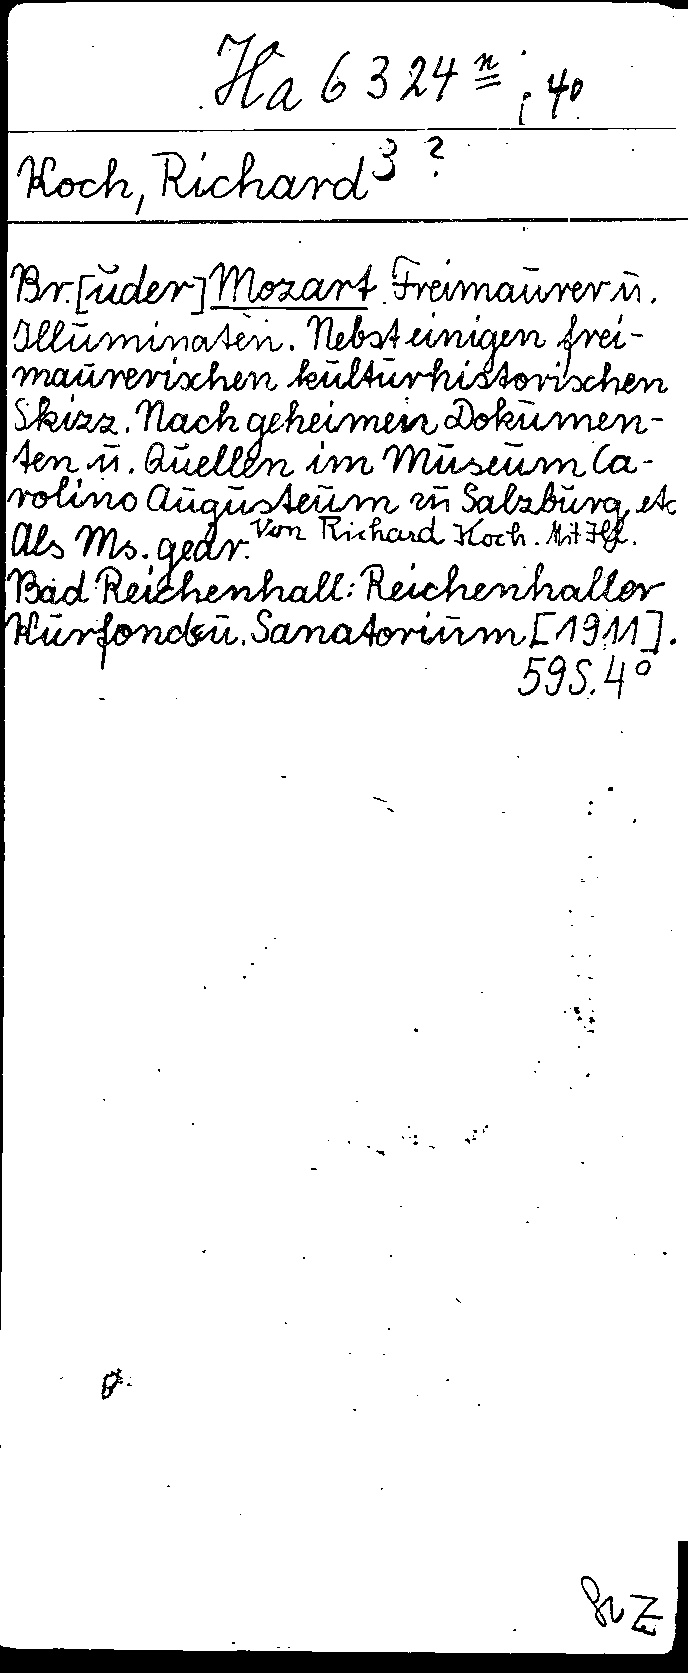 Ha 6324 n ; 4o
Koch, Richard 3 ?
Br.[uder] Mozart. Freimaurer u.
Illuminaten. Nebst einigen frei-
maurerischen kulturhistorischen
Skizz. Nach geheimen Dokumen-
ten u. Quellen im Museum Ca-
rolino Augusteum zu Salzburg etc
Als Ms. gedr. Von Richard Koch. Mit
Bad Reichenhall: Reichenhaller
Kurfond u. Sanatorium [1911].
59 S. 4°